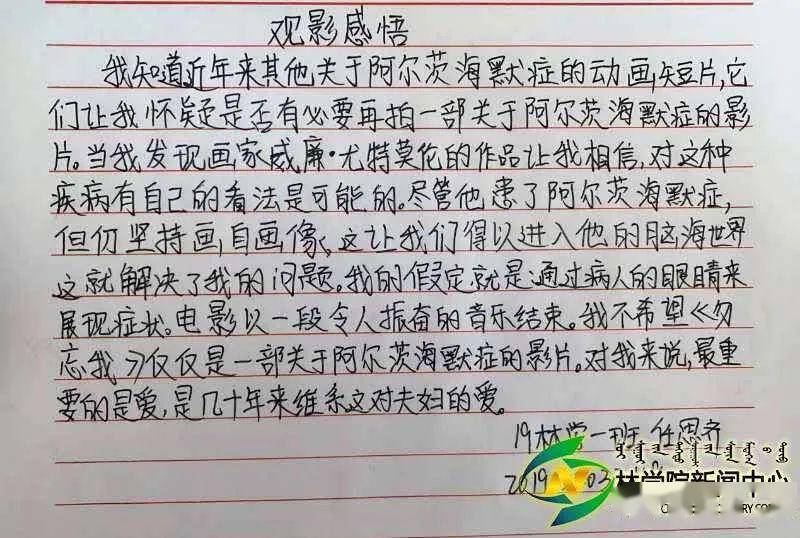 观影感悟
我知道近年来其他关于阿尔茨海默症的动画短片,它
们让我怀疑是否有必要再拍一部关于阿尔茨海默症的影
片。当我发现画家威廉·尤特莫伦的作品让我相信,对这种
疾病有自己的看法是可能的。尽管他患了阿尔茨海默症,
但仍坚持画自画像、这让我们得以进入他的脑海世界
这就解决了我的问题。我的假定就是通过病人的眼睛来
展现症状。电影以一段令人振奋的音乐结束。我不希望《勿
忘我》仅仅是一部关于阿尔茨海默症的影片。对我来说,最重
要的是爱,是几十年来维系这对夫妇的爱。
19林学一班 任思齐
2019 03
林学院新闻中心